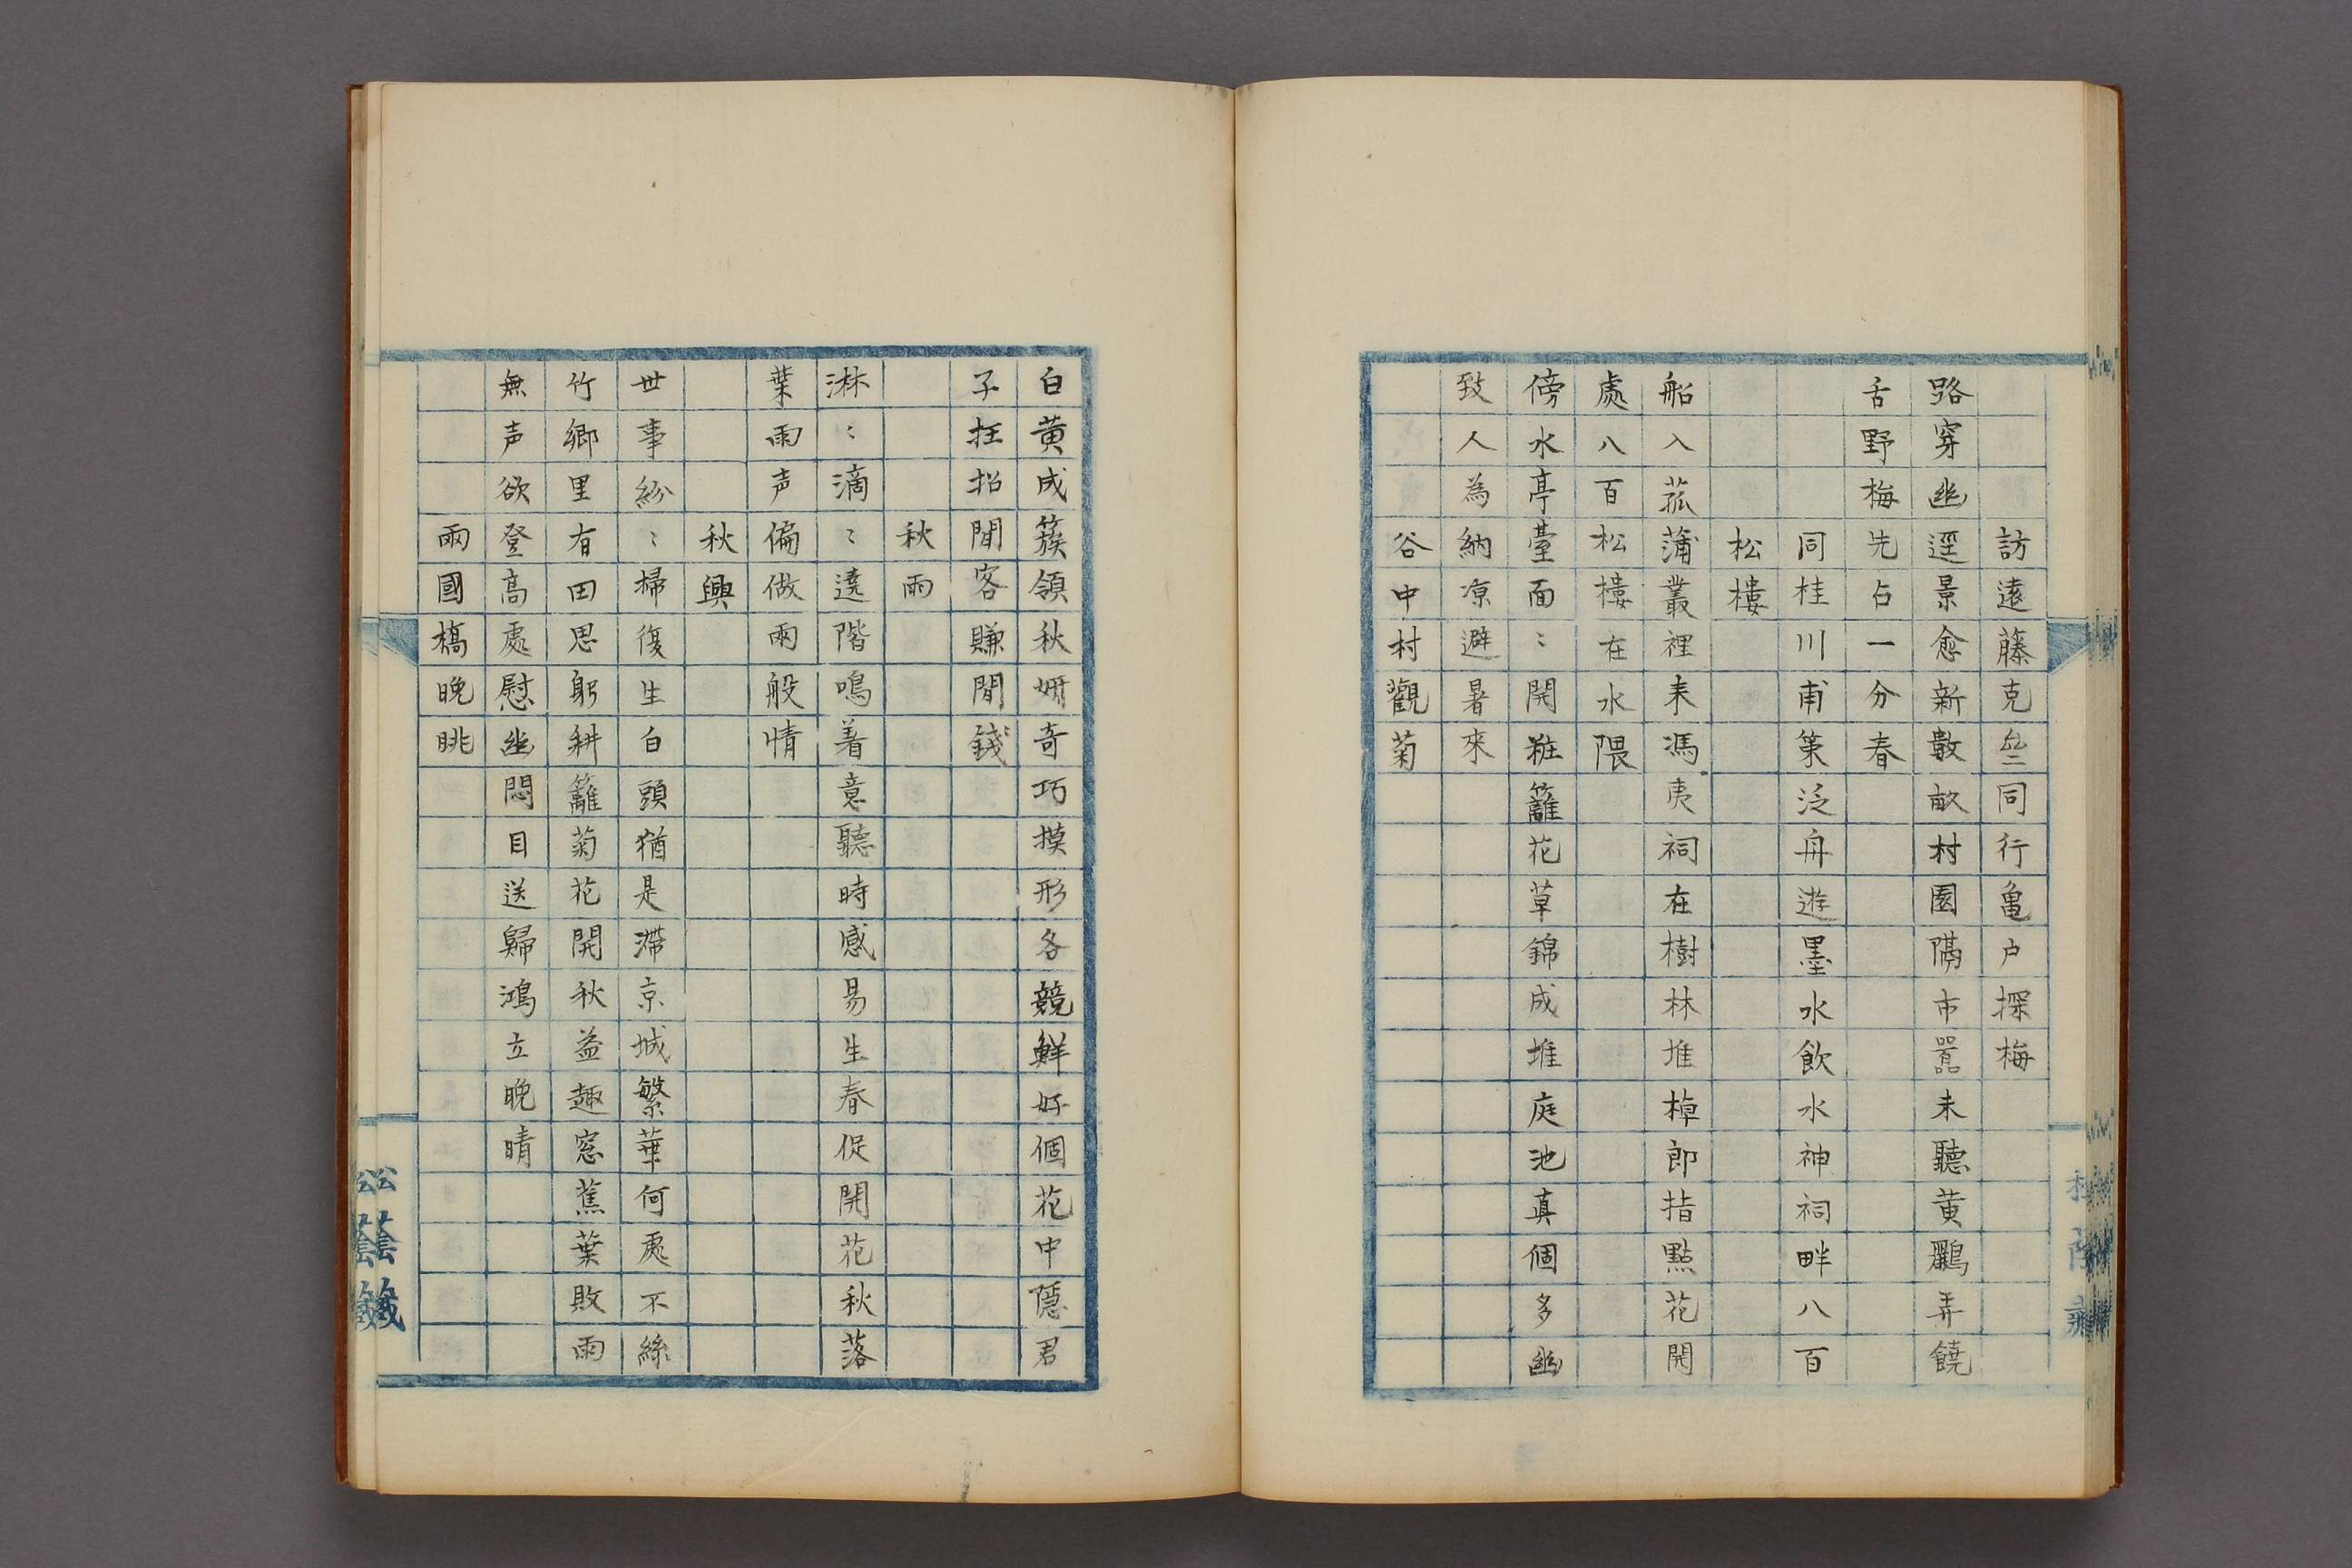 訪遠藤克㕘同行亀户探梅
路穿幽逕景愈新數畝村園隔市囂未聽黄鸝弄饒
舌野梅先占一分春
同桂川甫策泛舟遊墨水飲水神祠畔八百
松樓
船入菰蒲叢裡来馮夷祠在樹林堆棹郎指點花開
處八百松樓在水隈
傍水亭臺面〻開粧籬花草錦成堆庭池真個多幽
致人為納凉避暑來
谷中村觀菊
白黄成簇領秋妍奇巧摸形各競鮮好個花中隱君
子抂招閒客賺閒錢
秋雨
淋〻滴〻遶階鳴着意聽時感易生春促開花秋落
葉雨声偏做兩般情
秋興
世事紛〻掃復生白頭猶是滯京城繁華何處不絲
竹郷里有田思躬耕籬菊花開秋益趣窓蕉葉敗雨
無声欲登高處慰幽悶目送歸鴻立晚晴
兩國橋晚眺